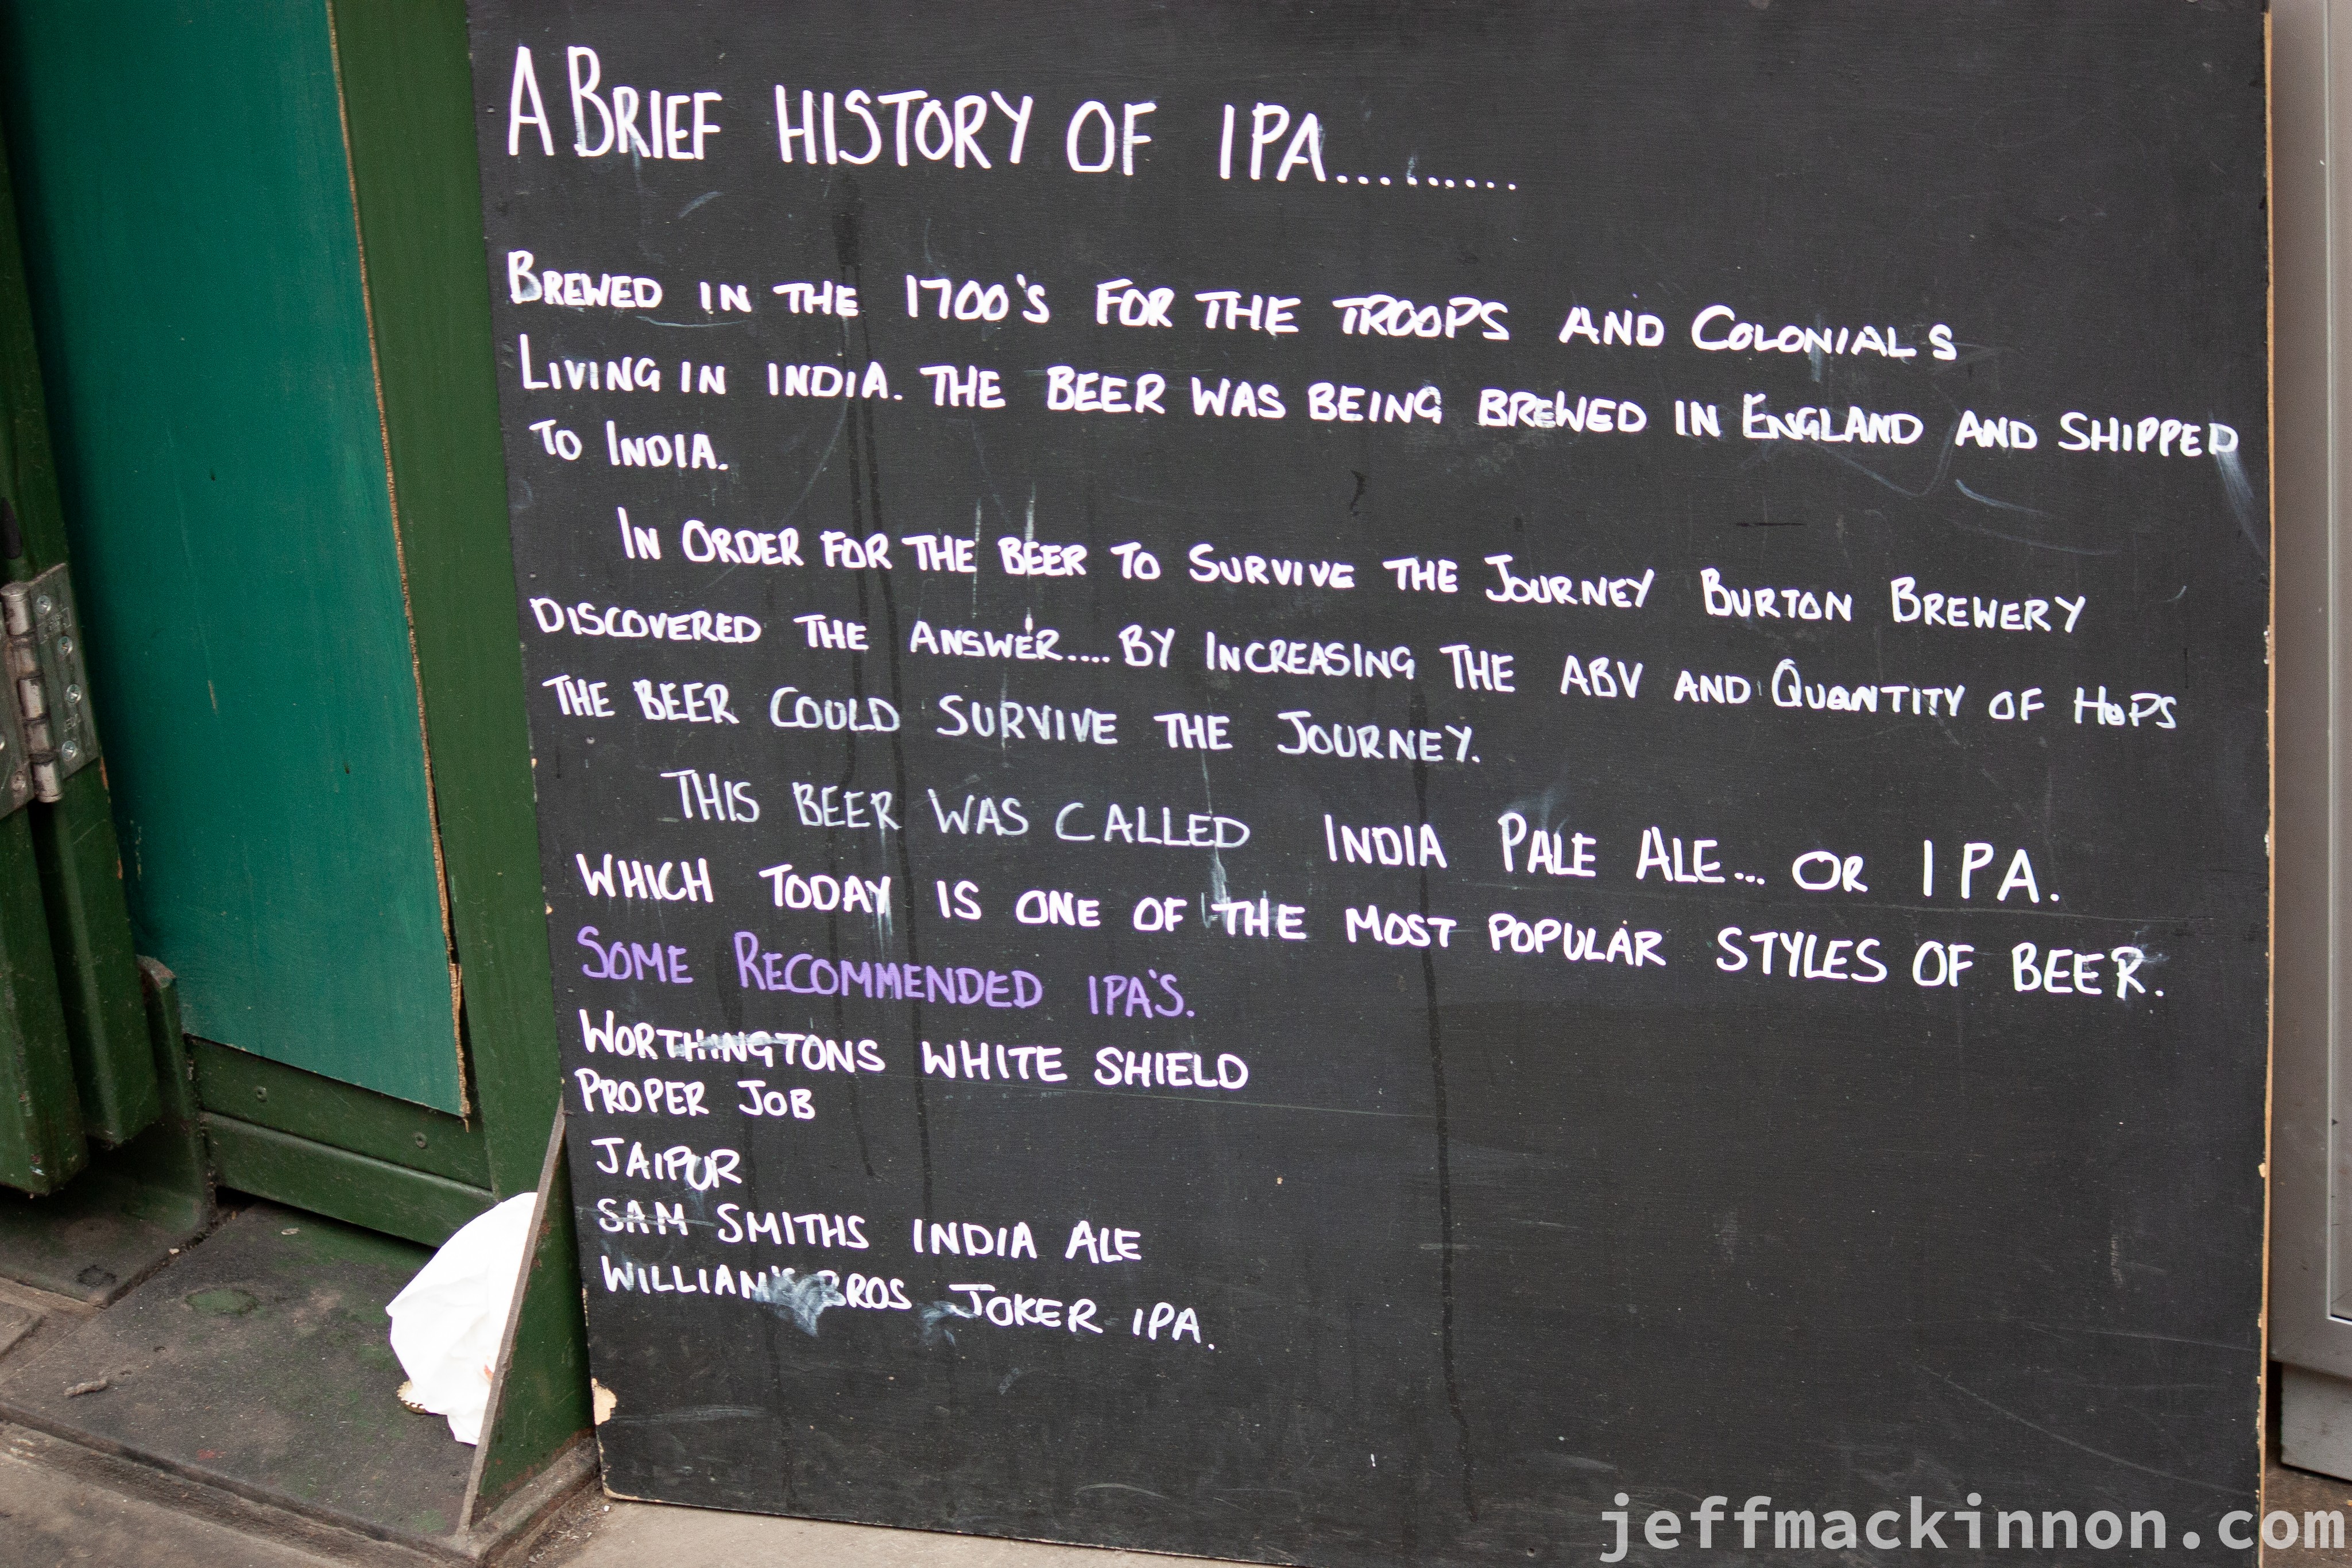 A BRIEF HISTORY OF IPA..........
BREWED IN THE 1700'S FOR THE TROOPS AND COLONIALS
LIVING IN INDIA. THE BEER WAS BEING BREWED IN ENGLAND AND SHIPPED
TO INDIA.
IN ORDER FOR THE BEER TO SURVIVE THE JOURNEY BURTON BREWERY
DISCOVERED THE ANSWER.... BY INCREASING THE ABV AND QUANTITY OF HOPS
THE BEER COULD SURVIVE THE JOURNEY.
THIS BEER WAS CALLED INDIA PALE ALE... OR IPA.
WHICH TODAY IS ONE OF THE MOST POPULAR STYLES OF BEER.
SOME RECOMMENDED IPA'S.
WORTHINGTONS WHITE SHIELD
PROPER JOB
JAIPUR
SAM SMITHS INDIA ALE
WILLIAN'S BROS JOKER IPA.
jeffmackinnon.com